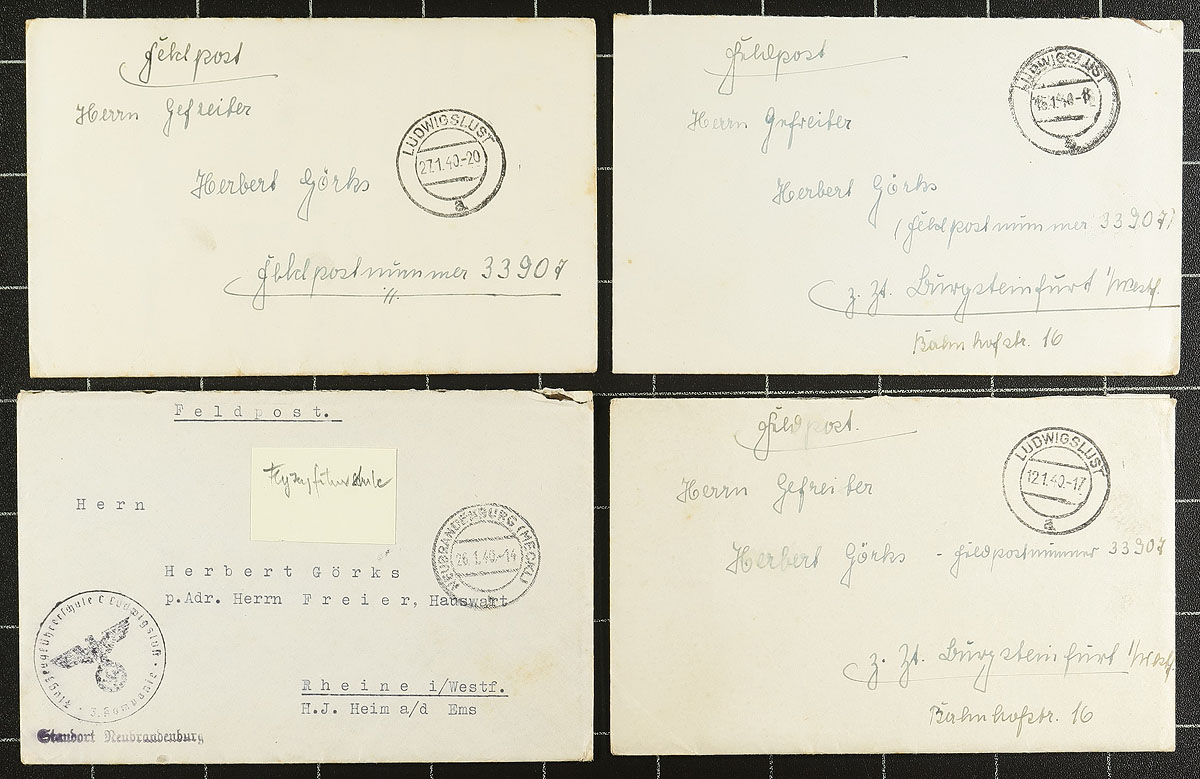 Feldpost
Herrn Gefreiter
LUDWIGSLUST
27.1.40.-20
a
Herbert Görks
Feldpostnummer 33907
Feldpost
Herrn Gefreiter
LUDWIGSLUST
Herbert Görks
(Feldpostnummer 33907)
z. Zt. Burgsteinfurt i/Westf.
Bahnhofstr. 16
Feldpost.
Hern
NEUBRANDENBURG (MECKL)
26.1.40.-14
Herbert Görks
p.Adr. Herrn Freier, Hauswart
Rheine i/Westf.
H.J. Heim a/d Ems
Flugzeugführerschule C Ludwigslust · 3. Kompanie ·
Standort Neubrandenburg
Feldpost.
Herrn Gefreiter
LUDWIGSLUST
12.1.40.-17
a
Herbert Görks - Feldpostnummer 33907
z. Zt. Burgsteinfurt i/Westf.
Bahnhofstr. 16